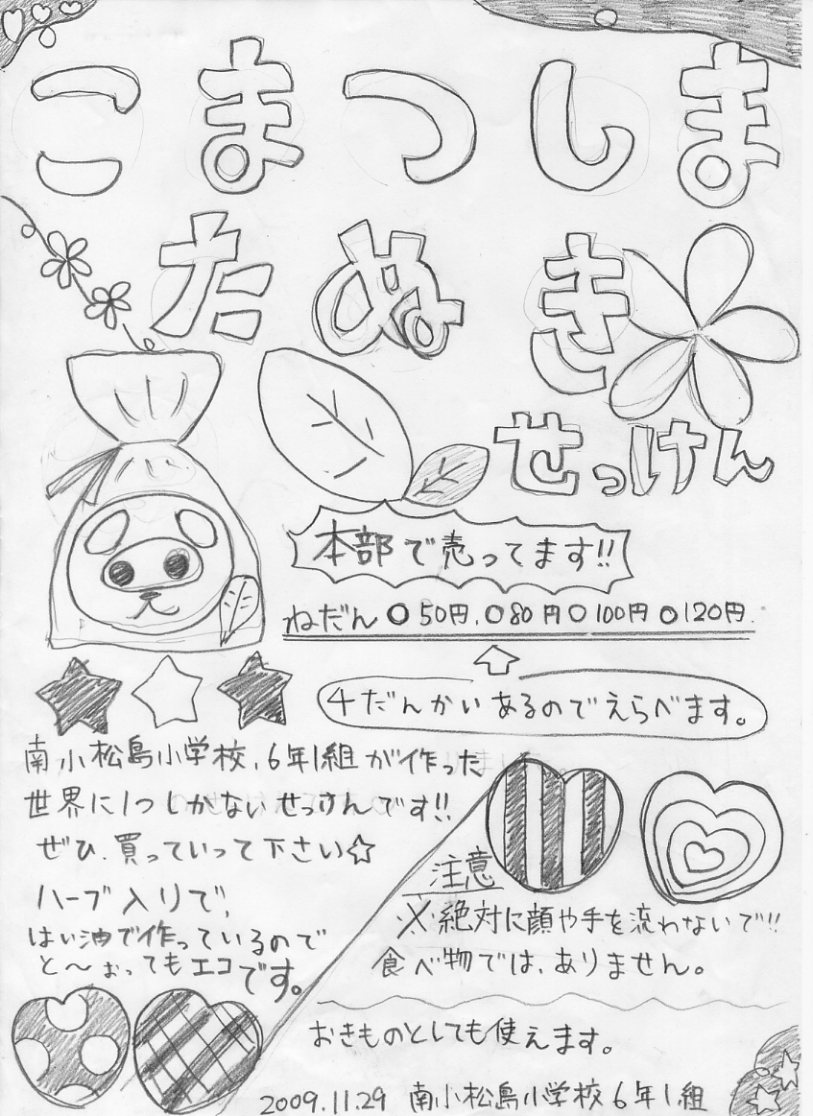 こまつしま
たぬき
せっけん
本部で売ってます!!
ねだん ○50円、○80円 ○100円 ○120円
4だんかいあるのでえらべます。
南小松島小学校、6年1組が作った
世界に1つしかないせっけんです!!
ぜひ、買っていって下さい☆
ハーブ入りで、
はい油で作っているので
と〜ぉってもエコです。
注意
※絶対に顔や手を流わないで!!
食べ物では、ありません。
おきものとしても使えます。
2009.11.29 南小松島小学校6年1組